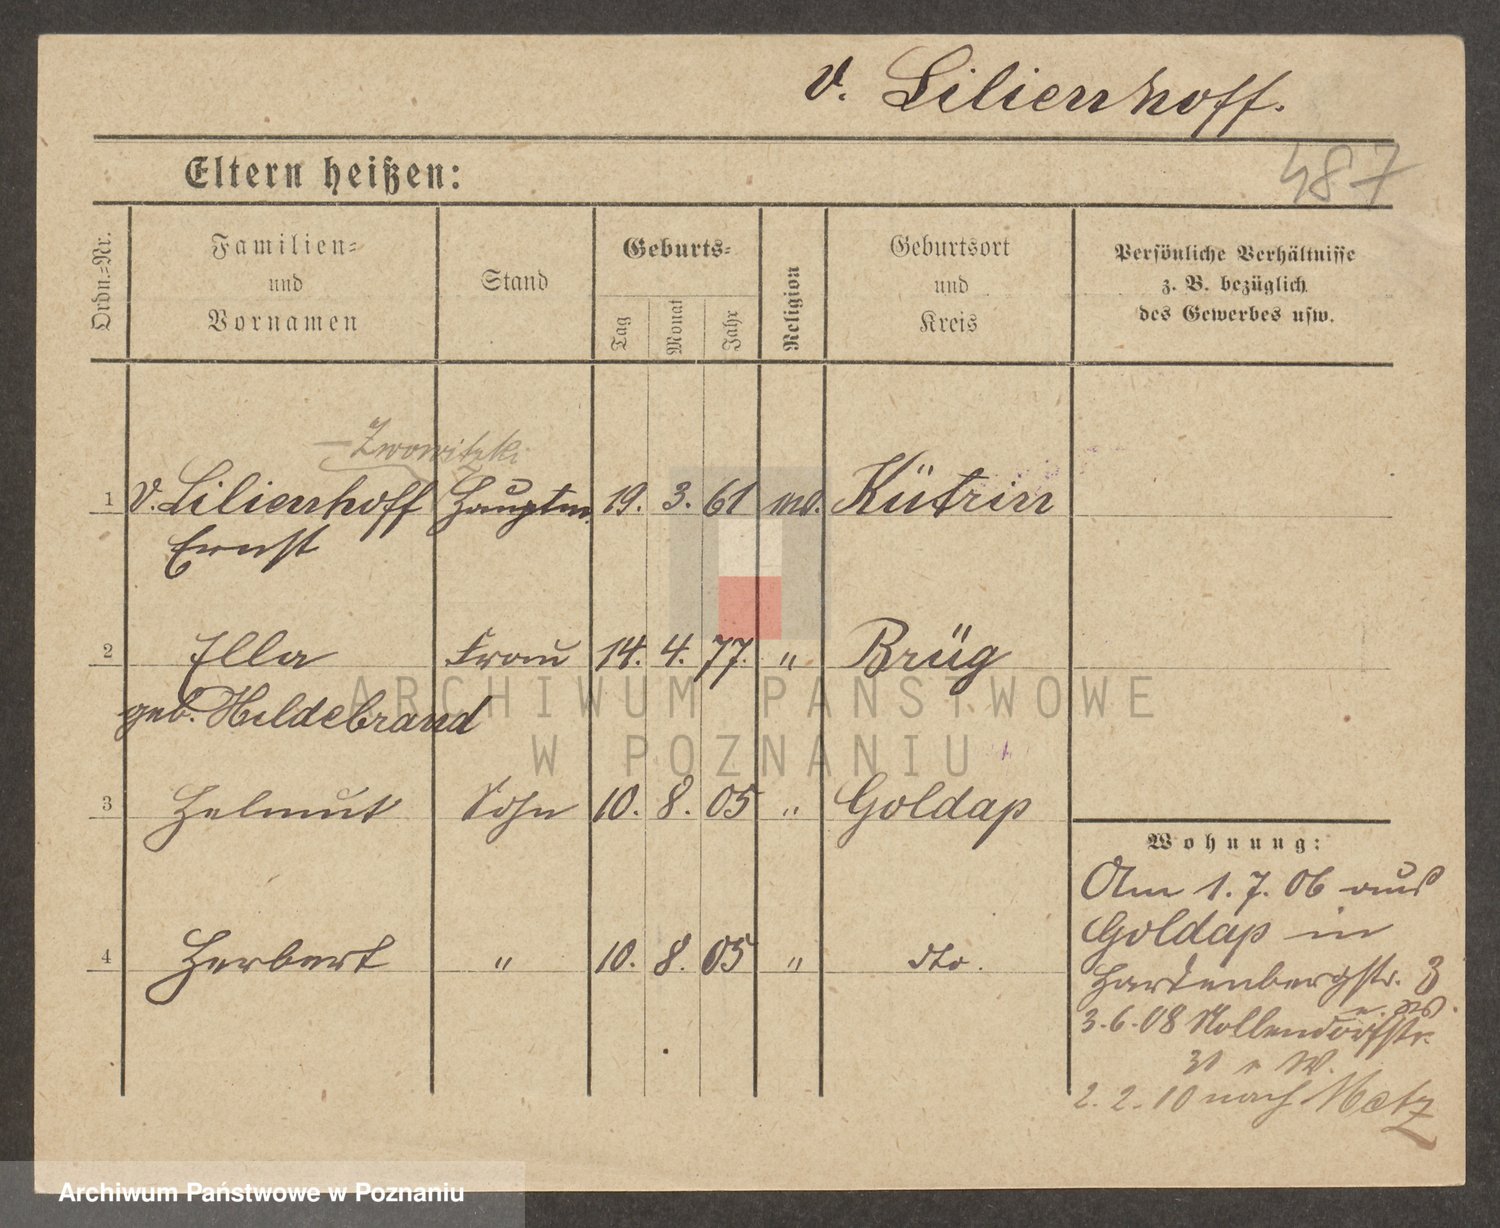 v. Lilienhoff.
487
Eltern heißen:
Ordn.=Nr.
Familien=
und
Vornamen
Stand
Geburts=
Tag
Monat
Jahr
Religion
Geburtsort
und
Kreis
Persönliche Verhältnisse
z. B. bezüglich
des Gewerbes usw.
— Zwowitzki
1 v. Lilienhoff Hauptm. 19. 3. 61 ev. Kütrin
Ernst
2 Ella Frau 14. 4. 77. " Brüg
geb. Hildebrand
3 Helmut Sohn 10. 8. 05 " Goldap
4 Herbert " 10. 8. 05 " dto.
Wohnung:
Am 1. 7. 06 aus
Goldap in
Hardenbergstr. 3
3.6.08 Nollendorfstr.
31 W.
2. 2. 10 nach Metz
ARCHIWUM PAŃSTWOWE
W POZNANIU
Archiwum Państwowe w Poznaniu